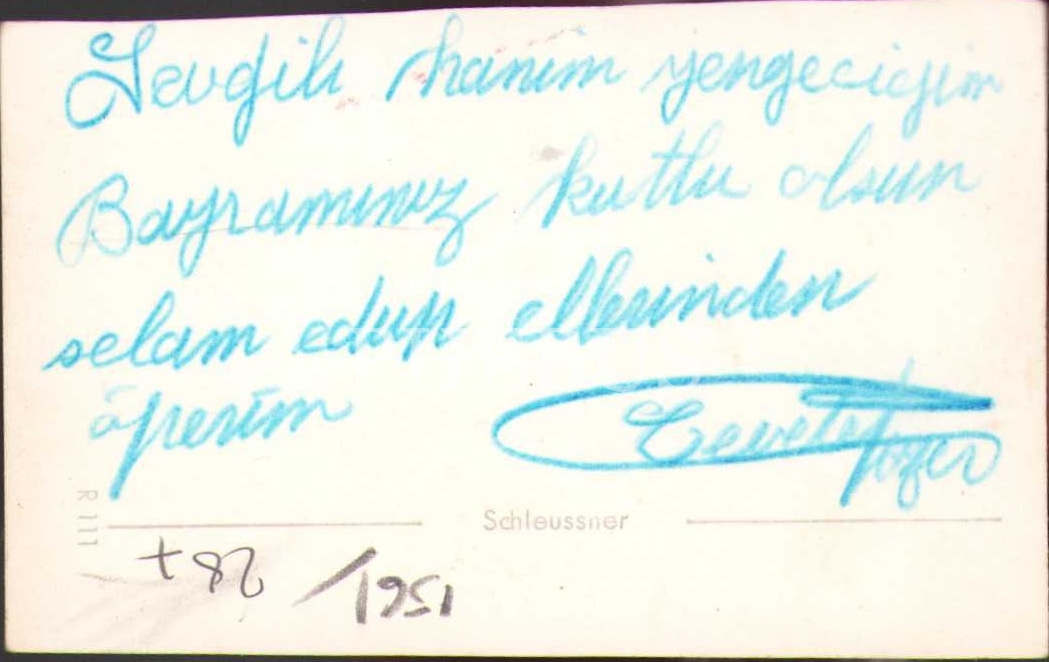 Sevgili hanım yengeciğim
Bayramınız kutlu olsun
selam edup ellerinden
öperim
Cevdet
R 111
Schleussner
/1951